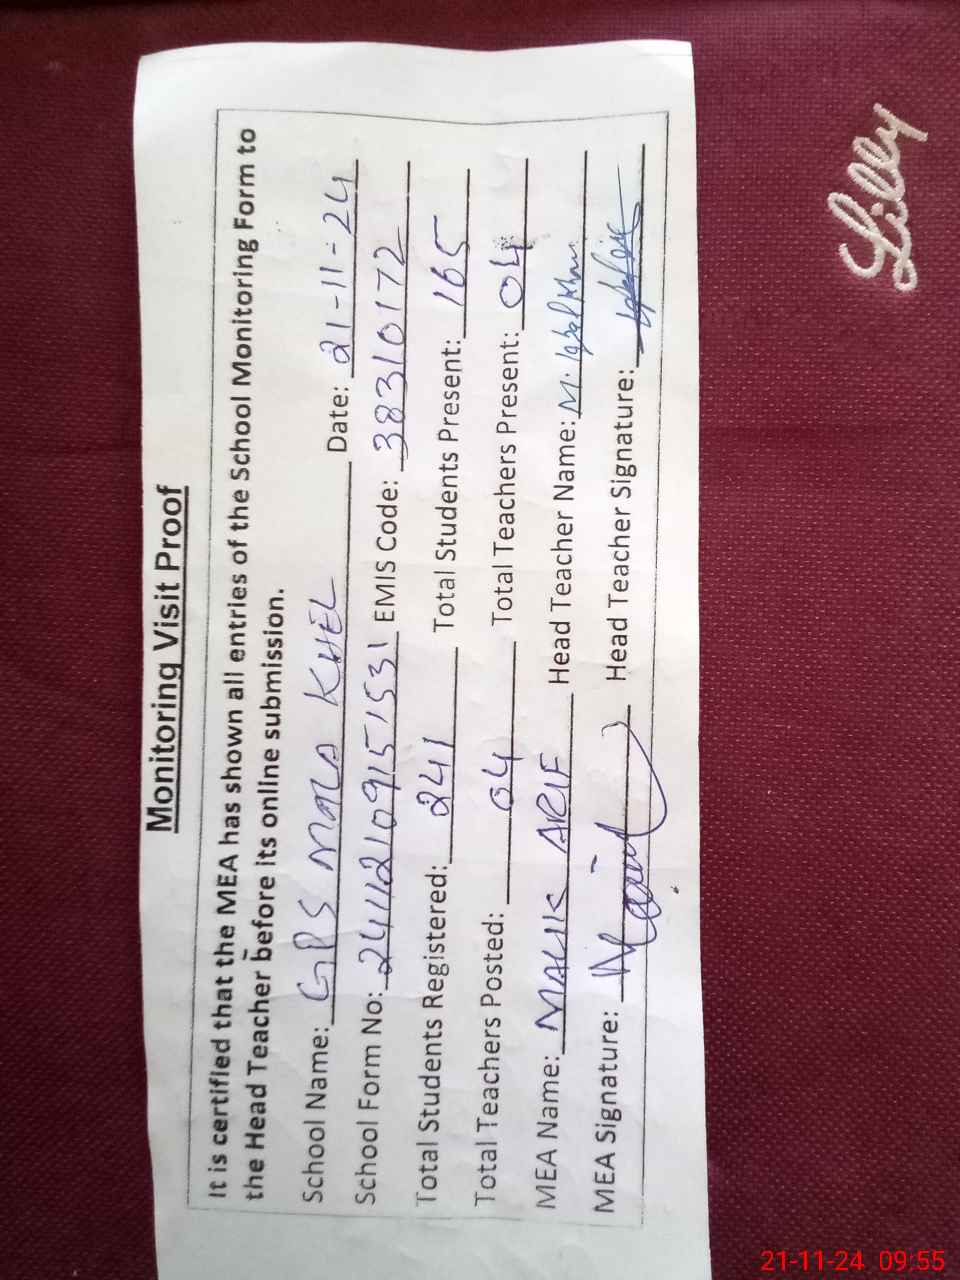 Monitoring Visit Proof
It is certified that the MEA has shown all entries of the School Monitoring Form to
the Head Teacher before its online submission.
School Name: GPS MALA KHEL Date: 21-11-24
School Form No: 24112109151531 EMIS Code: 38310172
Total Students Registered: 241 Total Students Present: 165
Total Teachers Posted: 04 Total Teachers Present: 04
MEA Name: MALIK ARIF Head Teacher Name: M. Iqbal Khan
MEA Signature: Head Teacher Signature:
Lilly
21-11-24 09:55